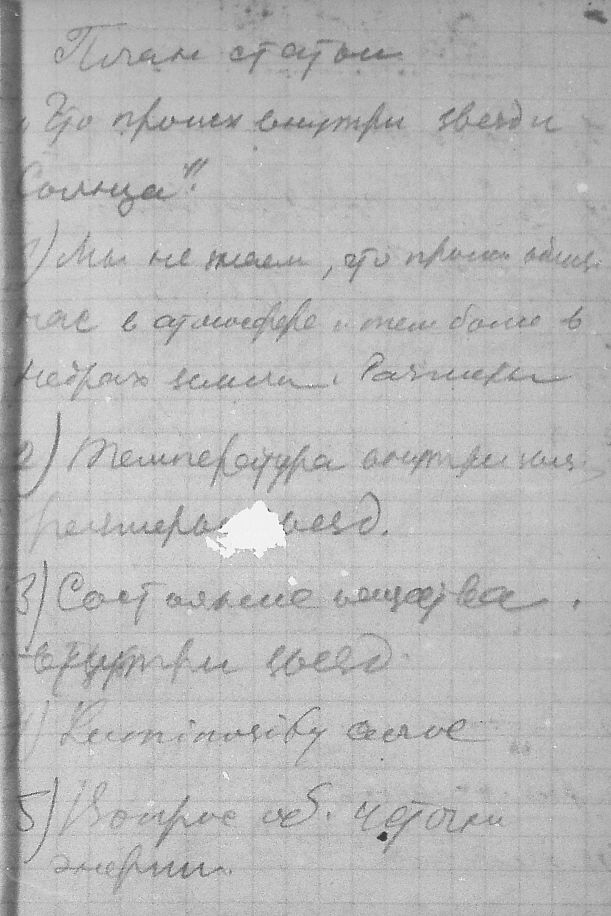 План статьи
„Что происх внутри звезд и
Солнца".
1) Мы не знаем, что происх
нас в атмосфере и тем более в
недрах земли.
2) Температура внутри
размеры звезд.
3) Состояние вещества
внутри звезд
4) Luminosity
5) Вопрос об источн
энергии.